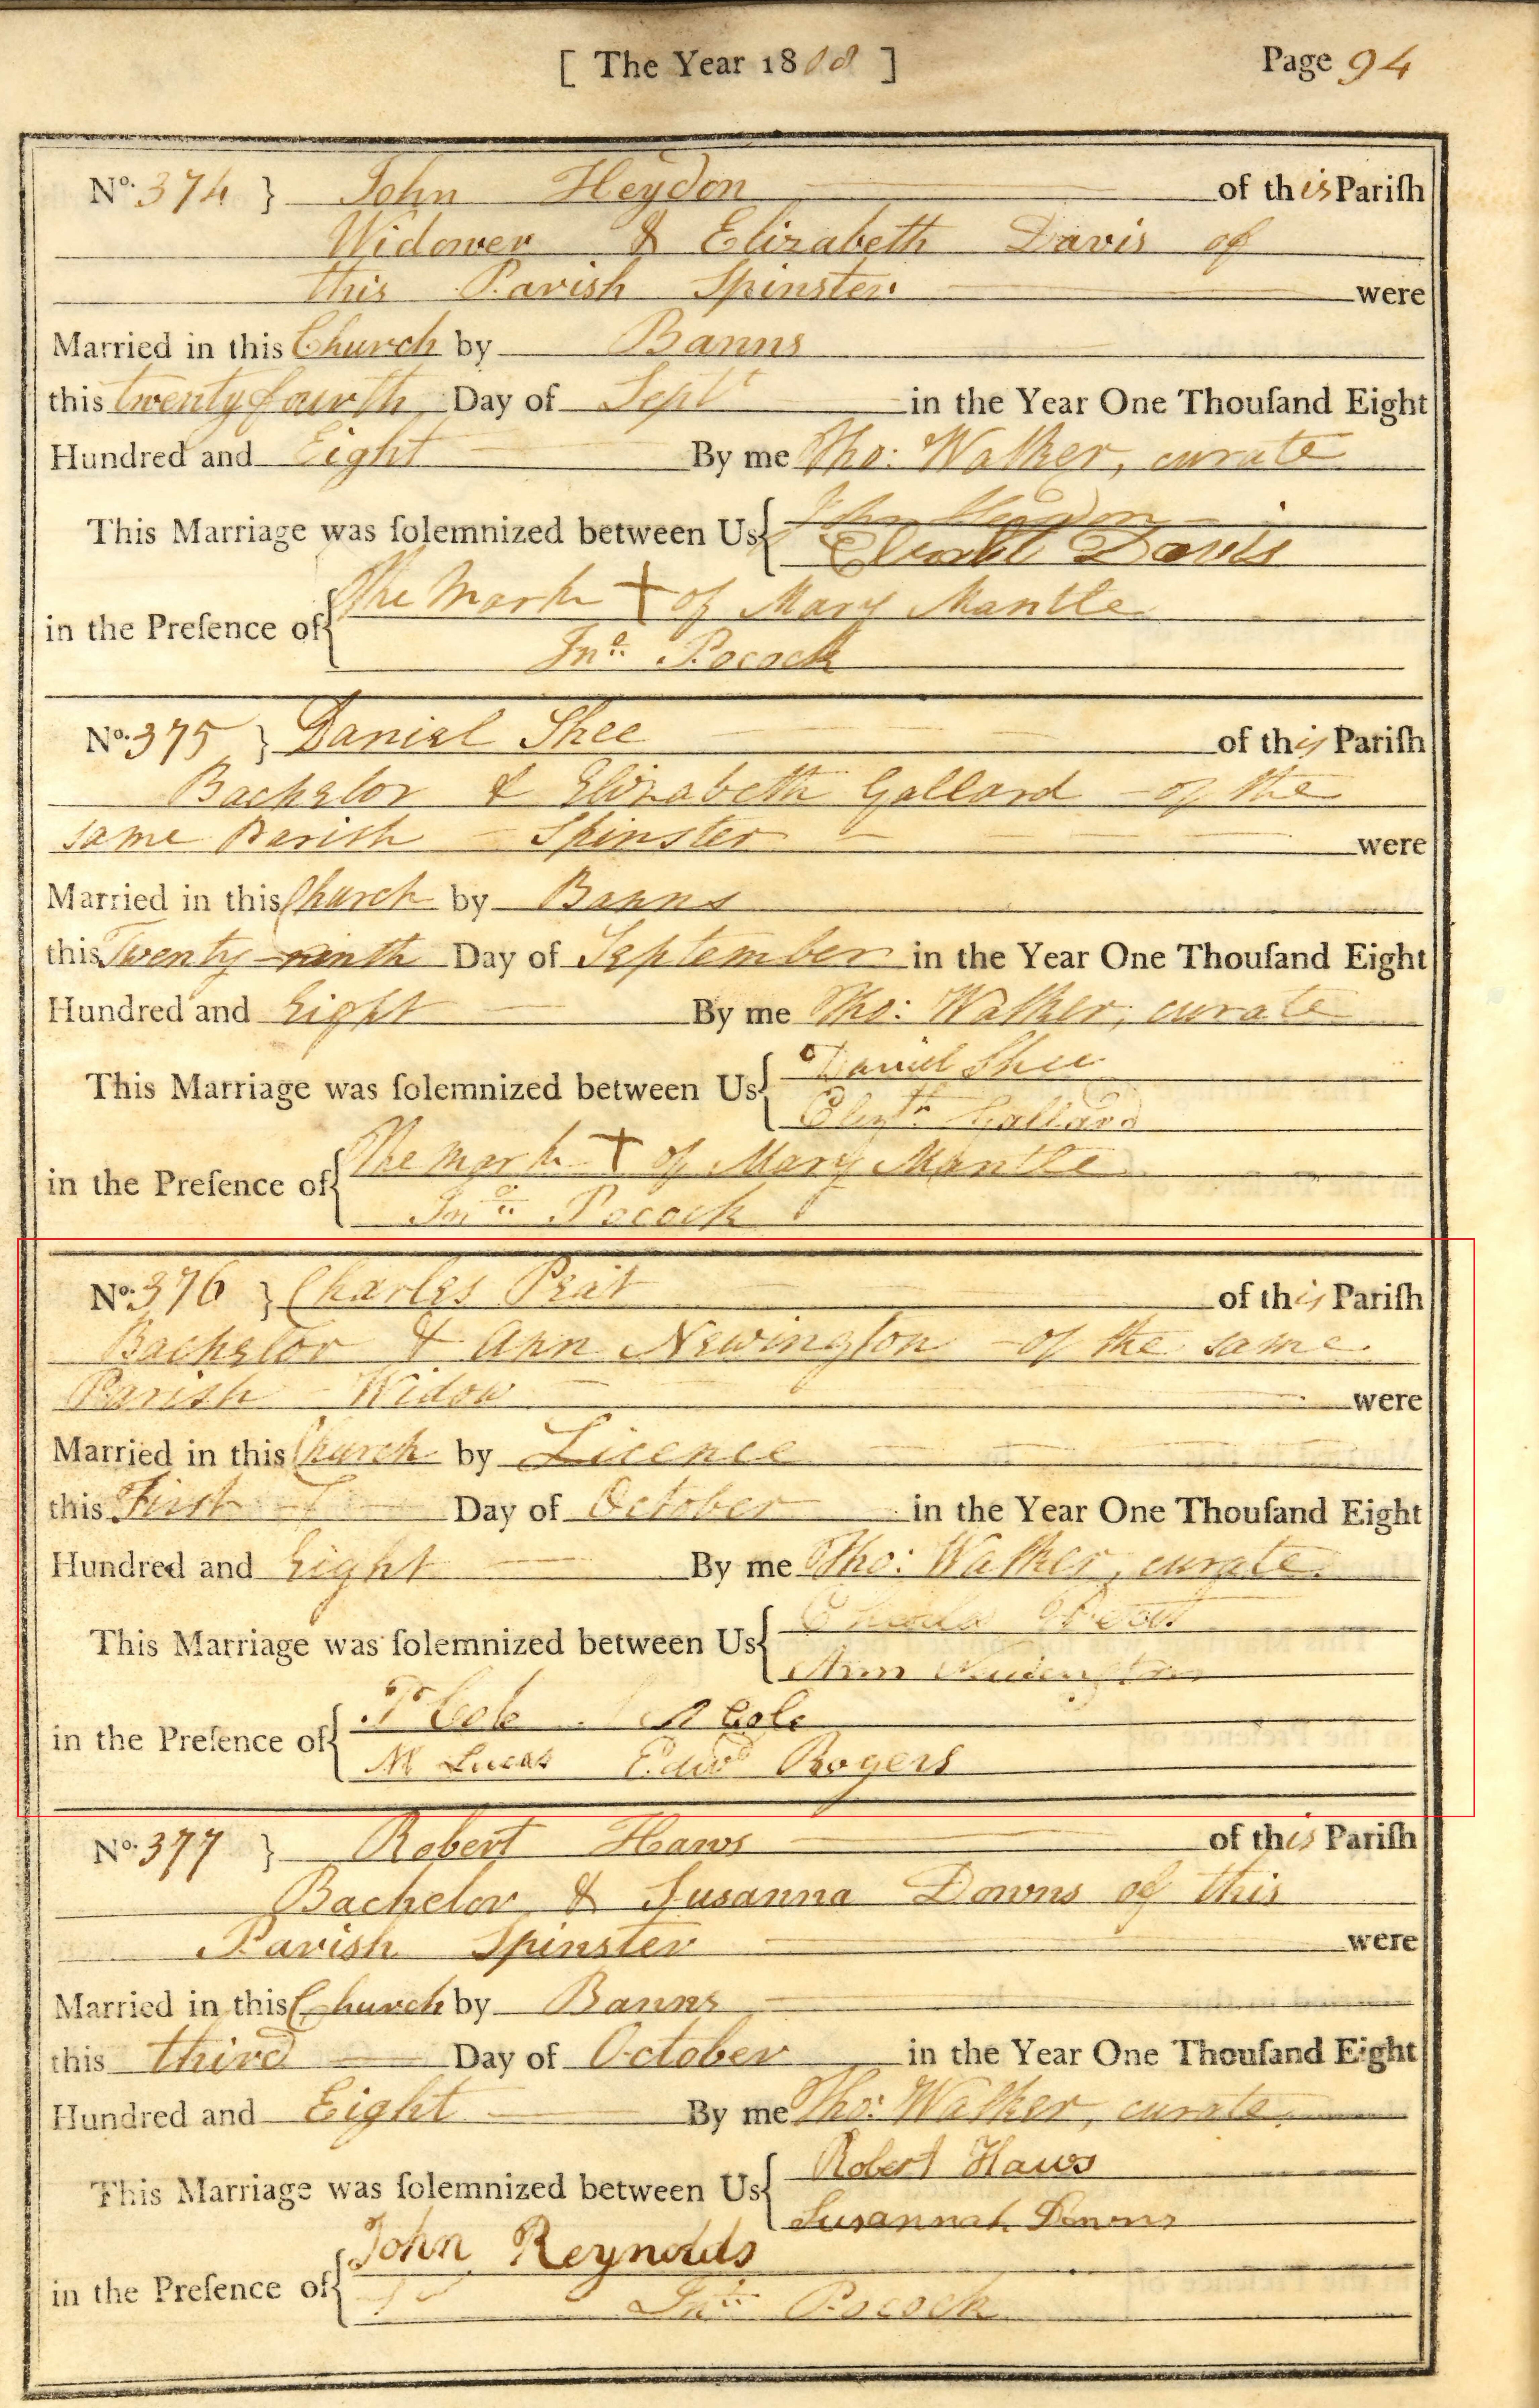 [ The Year 1808 ] Page 94
No. 374 } John Heydon of this Pariſh
Widower & Elizabeth Davis of
this Parish Spinster were
Married in this Church by Banns
this twenty fourth Day of Sept in the Year One Thouſand Eight
Hundred and Eight By me Tho: Walker, curate
This Marriage was ſolemnized between Us { John Heydon
Davis
in the Preſence of { The Mark + of Mary Mantle
Jno. Pocock
No. 375 } Daniel Shee of this Pariſh
Bachelor & Elizabeth Gallard of the
same Parish Spinster were
Married in this Church by Banns
this Twenty-ninth Day of September in the Year One Thouſand Eight
Hundred and Eight By me Tho: Walker, curate
This Marriage was ſolemnized between Us { Daniel Shee
Elizth Gallard
in the Preſence of { The mark + of Mary Mantle
Jno. Pocock
No. 376 } Charles Peat of this Pariſh
Bachelor & Ann Newington of the same
Parish Widow were
Married in this Church by Licence
this First Day of October in the Year One Thouſand Eight
Hundred and Eight By me Tho: Walker, curate
This Marriage was ſolemnized between Us { Charles Peat
Ann Newington
in the Preſence of { Cole Cole
M Lucas Edwd Rogers
No. 377 } Robert Haws of this Pariſh
Bachelor & Susanna Downs of this
Parish Spinster were
Married in this Church by Banns
this third Day of October in the Year One Thouſand Eight
Hundred and Eight By me Tho: Walker, curate.
This Marriage was ſolemnized between Us { Robert Haws
Susannah Downs
in the Preſence of { John Reynolds
Jno. Pocock